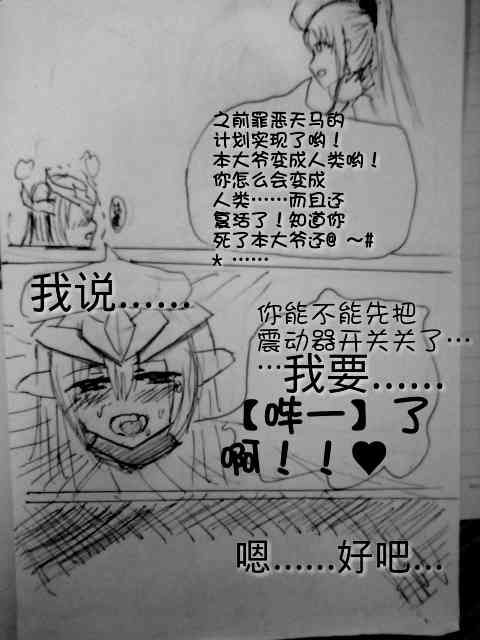 之前罪恶天马的
计划实现了哟！
本大爷变成人类哟！
你怎么会变成
人类……而且还
复活了！知道你
死了本大爷还@ ～#
* ……
我说……
你能不能先把
震动器开关关了…
…我要……
【哔—】了
啊！！♥
嗯……好吧…